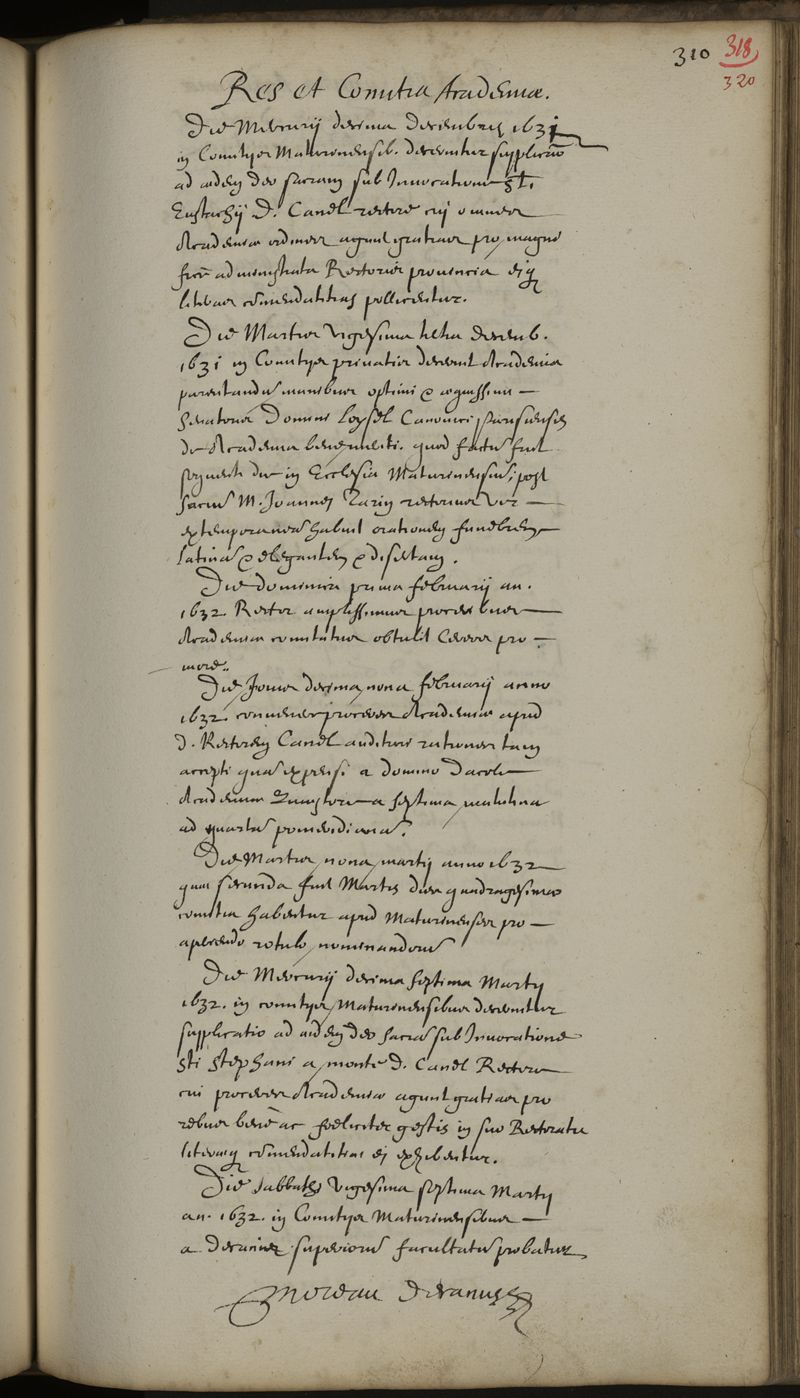 310 318
320
Res et Comitia Academiæ.
Die Mercurij decima decembris 1631
in Comitijs Maturinensib. decernitur supplicao
ad ædem deo sacram sub Invocatione Sti.
Eustachij D. Canel rectore cuj omnes
Academiæ ordines agunt gratias pro magno
administrata Rectoria provincia eiq
literas comendatitias pollicentur.
Die Martis vigesima tertia decemb.
1631 in Comitijs privatis decrevit Academia
parentandum manibus optimi & æquissimi
Senatoris Domini Loysel Canonici Parisiensis
de Academia benemeriti. quod factum fuit
sequenti die in Ecclesia Maturinensium; post
sacrum M. Joannes Tarin rectorius vir
extemporaneam habuit orationem funebrem
latinam & elegantem & disertam.
Die dominica prima februarij an.
1632. Rector amplissimus proceribus
Academiæ comitatus obtulit Cereos pro
more.
Die Jovis decima nona februarij anno
1632. convenere proceres Academiæ apud
D. Rectorem Canel audituri rationes tam
accepti quam expensi a domino Dacole
Academiæ Quæstore a septima matutina
ad quartam pomeridianam.
Die Martis nona martij anno 1632
quæ secunda fuit Martis dies quadragesimæ
comitia habentur apud Maturinenses pro
aperiendo rotulo nominandorum
Die Mercurij decima septima Martij
1632. in comitijs Maturinensibus decernitur
supplicatio ad ædem deo sacram sub Invocatione
Sti Stephani a monte D. Canel Rectore
cui proceres Academiæ agunt gratias pro
rebus bene ac foeliciter gestis in suo Rectoratu
literæq comendatitiæ ej exhibentur.
Die Sabbathi Vigesima septima Martij
an. 1632. in Comitijs Maturinensibus
a Decanis superiorum facultatum probatur
Moreau Decanus